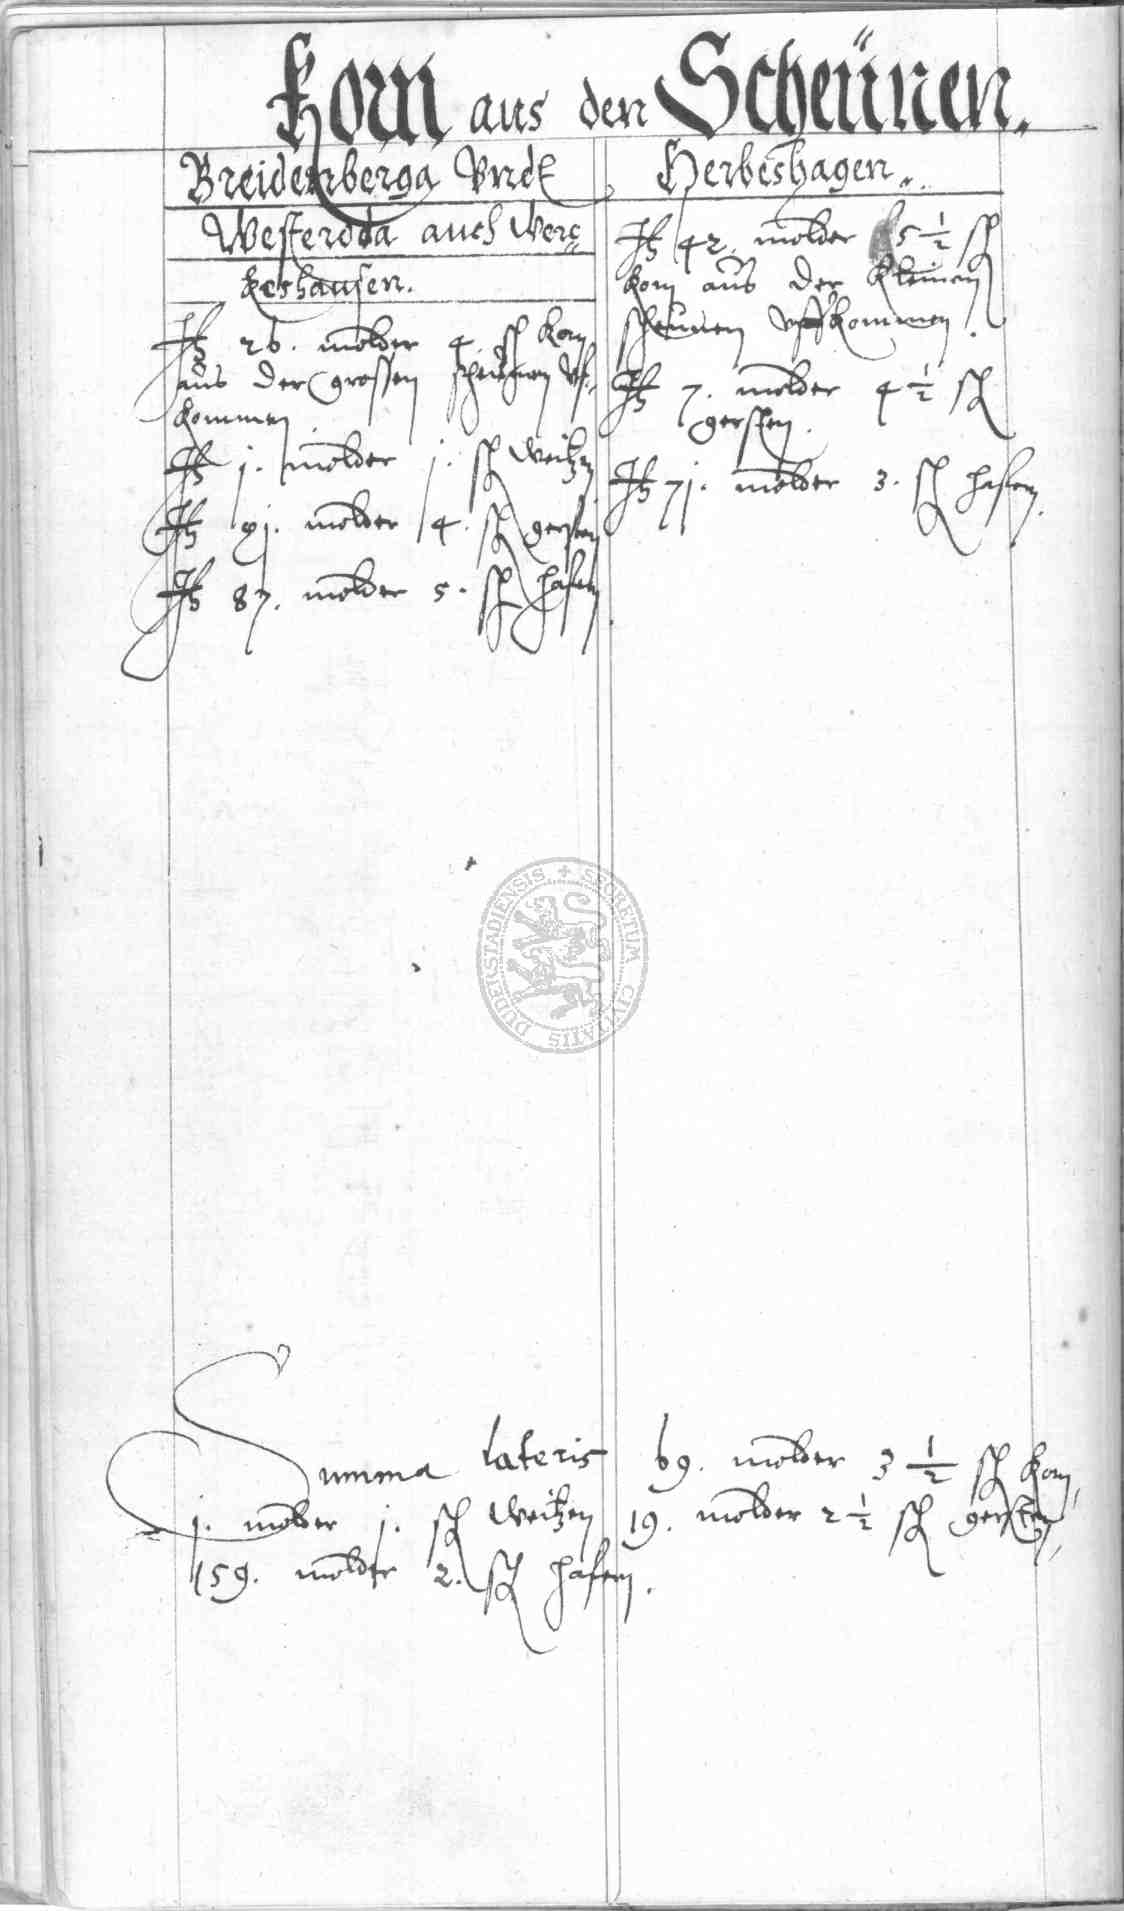 Korn aus den Scheünen.
Breidenberga Vnde
Westeroda auch Werc=
keshausen.
It 26. molder 4. sch Korn
aus der grossen scheunen vf=
kommen.
It j. molder j. sch weitzen
It 1j. molder 4. sch gersten
It 87. molder 5. sch hafern
Herbeshagen.
It 42. molder 5 1/2 sch
Korn aus der kleinen
scheunen vffkommen.
It 7. molder 4 1/2 sch
gersten.
It 7j. molder 3. sch hafern.
Summa lateris 69. molder 3 1/2 sch Korn,
j. molder j. sch weitzen 19. molder 2 1/2 sch gersten,
159. molder 2. sch hafern.
SECRETUM CIVITATIS DUDERSTADIENSIS